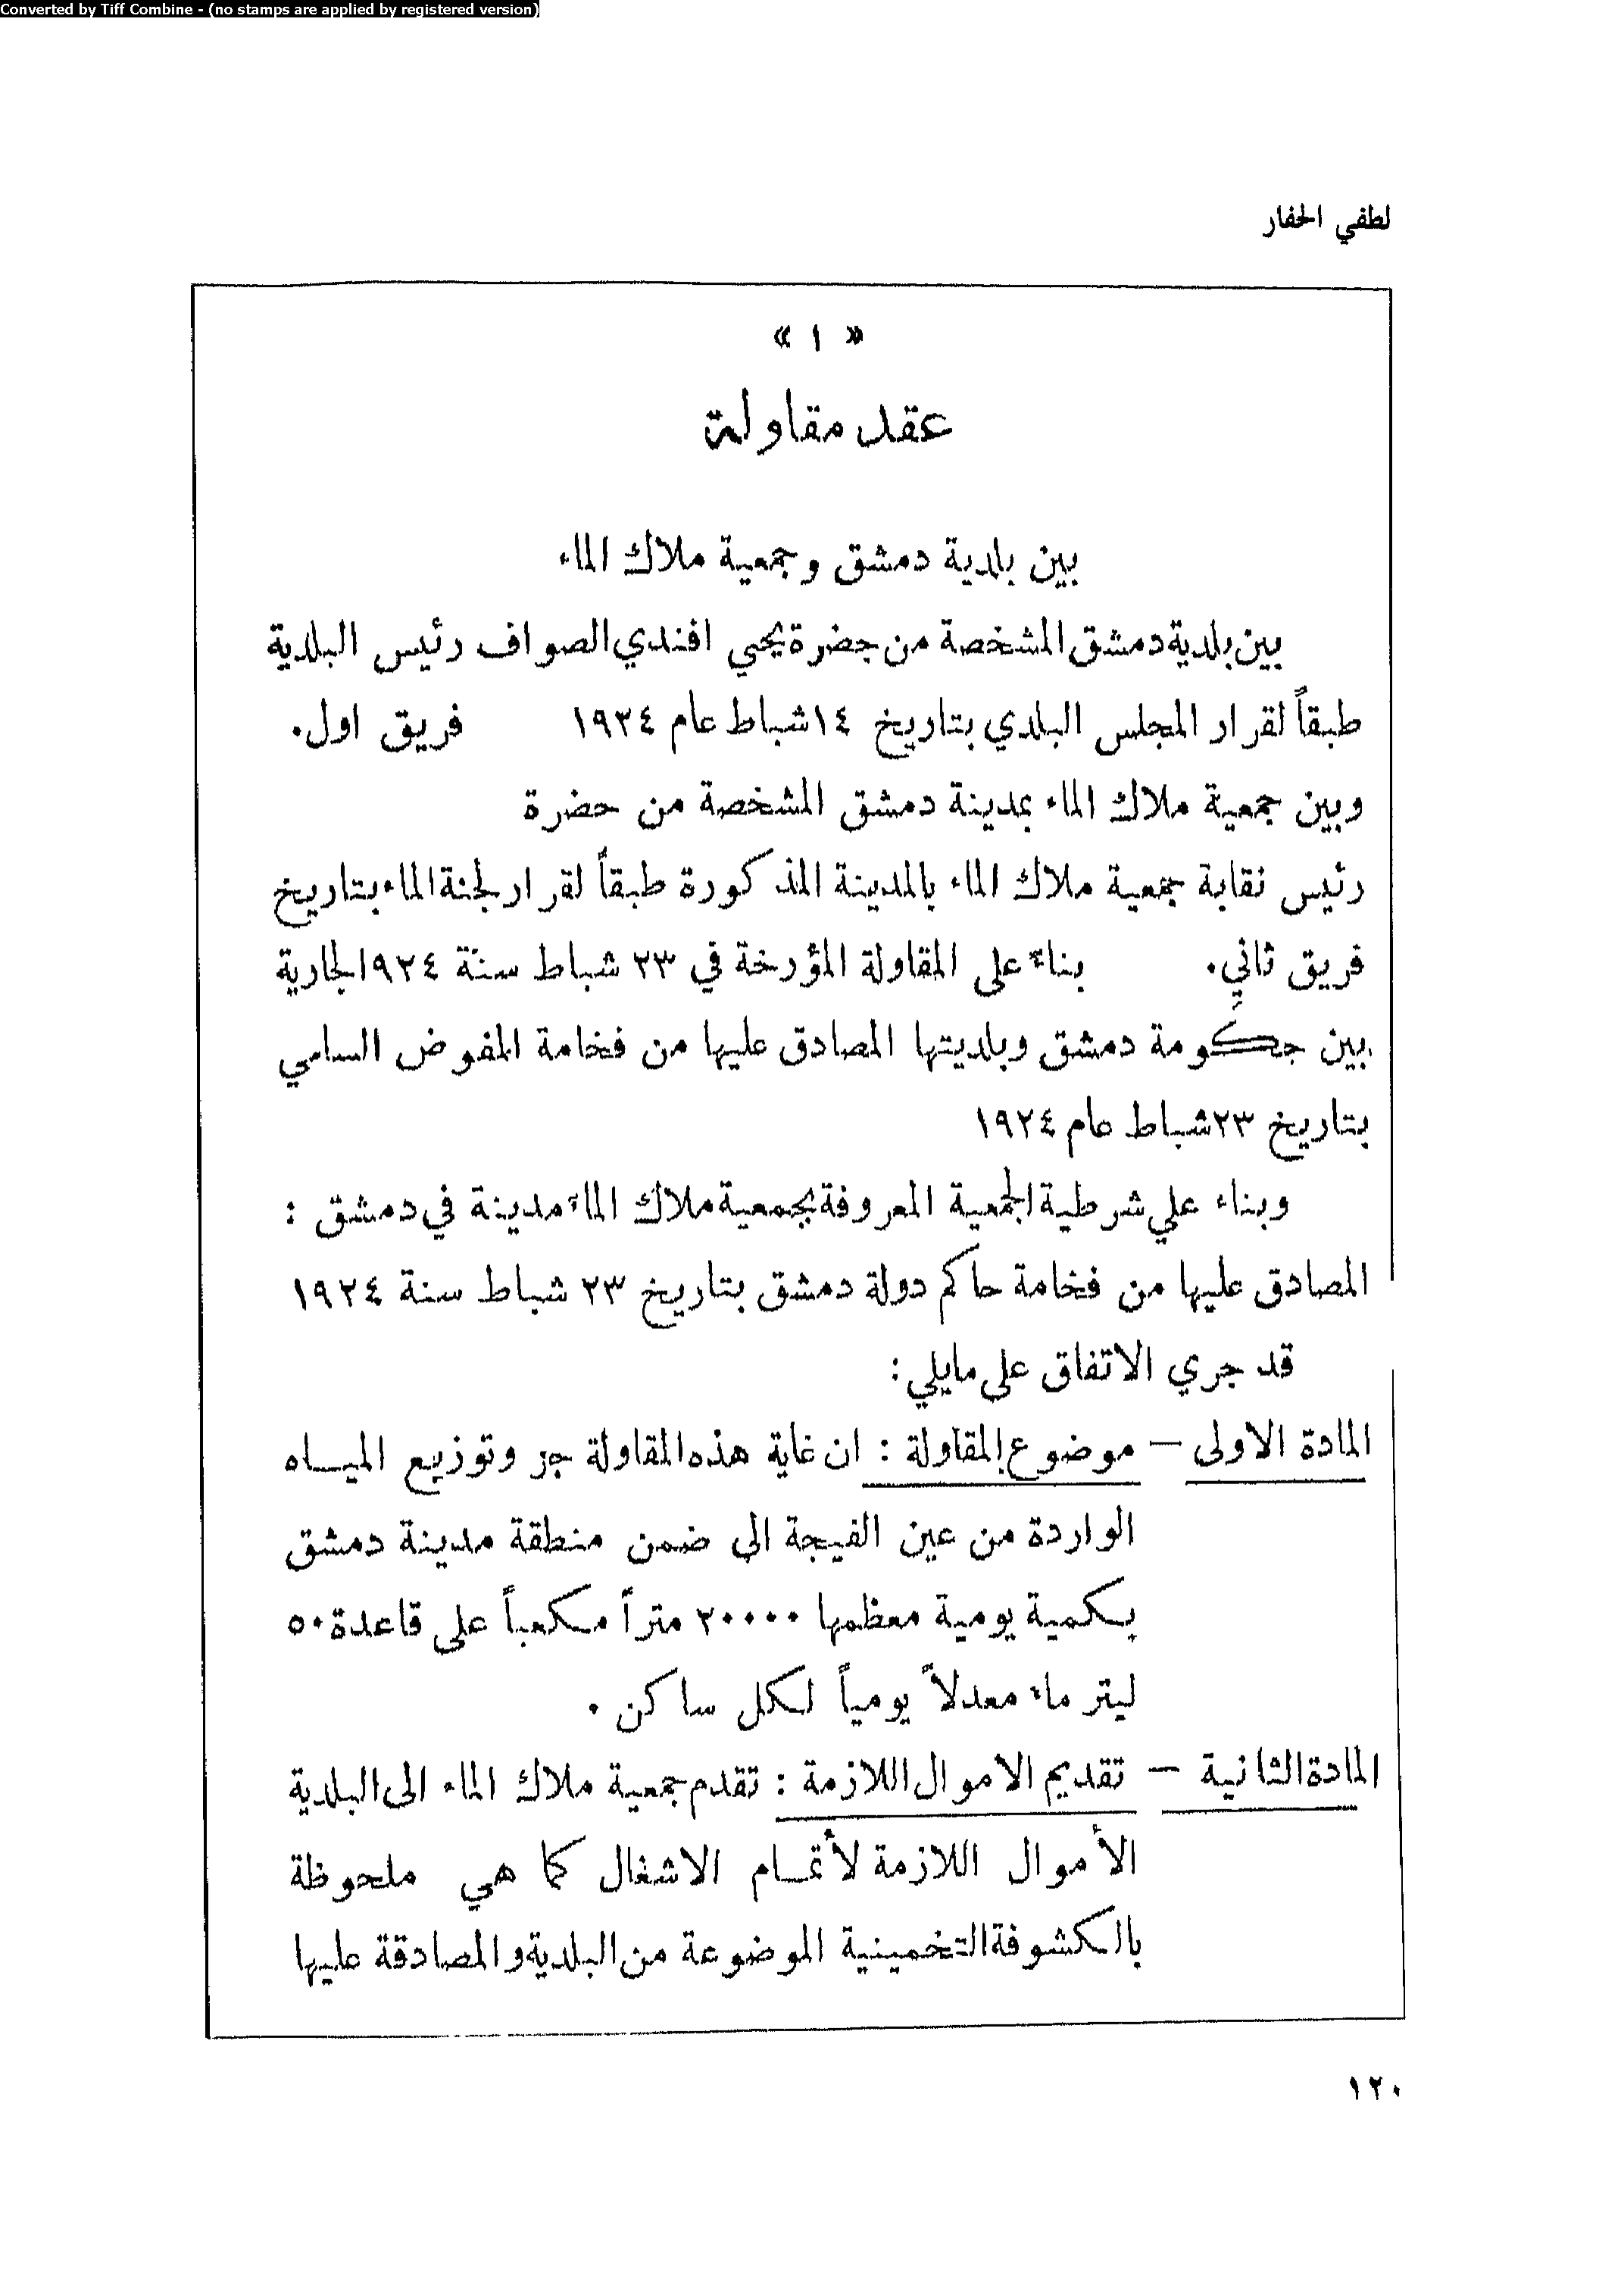 Converted by Tiff Combine - (no stamps are applied by registered version)
لطفي الحفار
« ١ »
عقد مقاولة
بين بلدية دمشق وجمعية ملاك الماء
بين بلدية دمشق المشخصة من حضرة يحيي افندي الصواف رئيس البلدية
طبقاً لقرار المجلس البلدي بتاريخ ١٤ شباط عام ١٩٢٤ فريق اول.
وبين جمعية ملاك الماء بمدينة دمشق المشخصة من حضرة
رئيس نقابة جمعية ملاك الماء بالمدينة المذكورة طبقاً لقرار لجنة الماء بتاريخ
فريق ثاني. بناء على المقاولة المؤرخة في ٢٣ شباط سنة ٩٢٤ الجارية
بين حكومة دمشق وبلديتها المصادق عليها من فخامة المفوض السامي
بتاريخ ٢٣ شباط عام ١٩٢٤
وبناء علي شرطية الجمعية المعروفة بجمعية ملاك الماء مدينة في دمشق :
المصادق عليها من فخامة حاكم دولة دمشق بتاريخ ٢٣ شباط سنة ١٩٢٤
قد جري الاتفاق على مايلي :
المادة الاولى – موضوع المقاولة : ان غاية هذه المقاولة جر وتوزيع الميــاه
الواردة من عين الفيجة الى ضمن منطقة مدينة دمشق
بكمية يومية معظمها ٢٠٠٠٠ متراً مكعباً على قاعدة ٥٠
ليتر ماء معدلاً يومياً لكل ساكن .
المادة الثانية – تقديم الاموال اللازمة : تقدم جمعية ملاك الماء الى البلدية
الأموال اللازمة لأتمــام الاشغال كما هي ملحوظة
بالكشوفة التخمينية الموضوعة من البلدية والمصادقة عليها
١٢٠